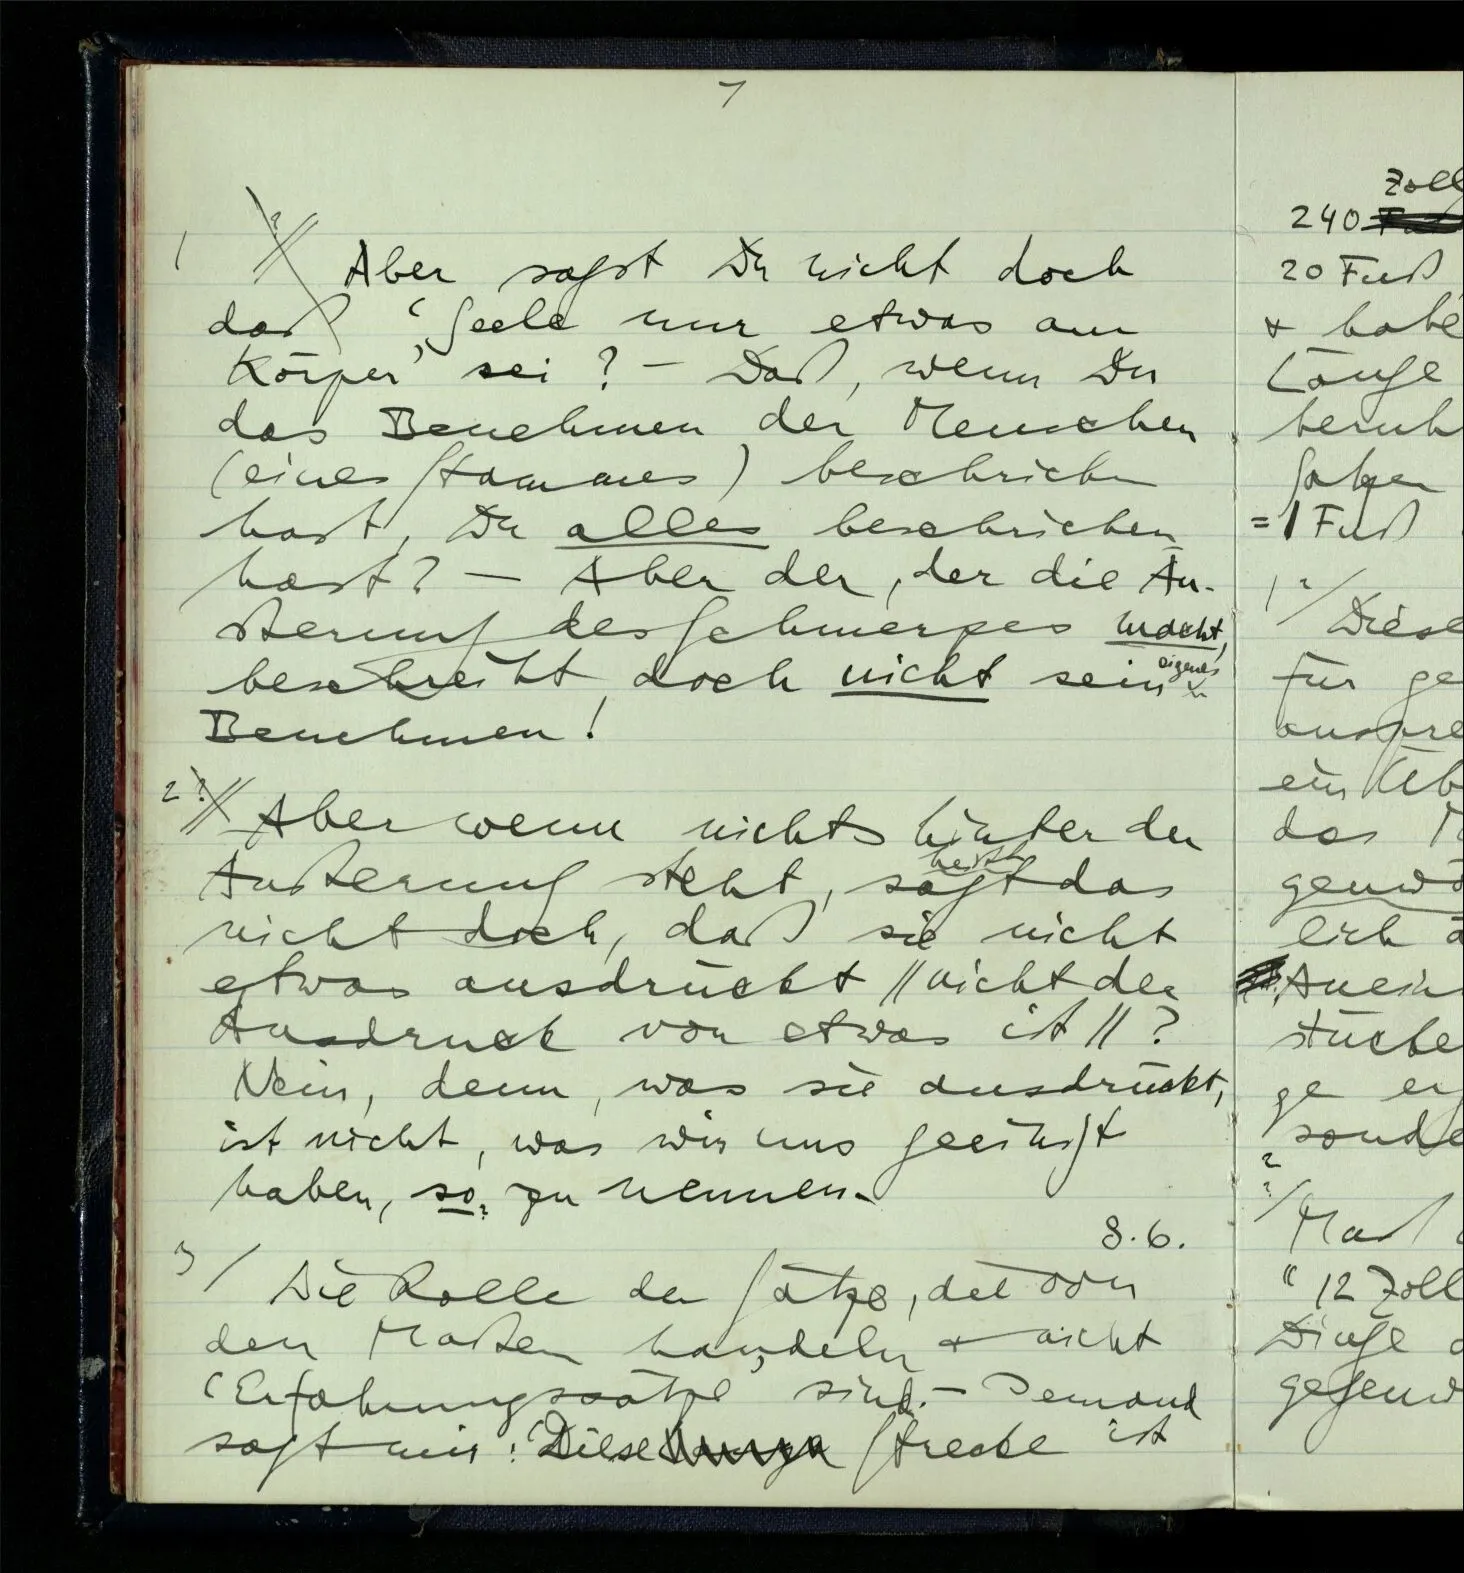 1
1 ? // Aber sagst Du nicht doch
daß ‘Seele nur etwas am
Körper’ sei? – Daß, wenn Du
das Benehmen der Menschen
(eines Stammes) beschrieben
hast, Du alles beschrieben
hast? – Aber der, der die Äu-
ßerung des Schmerzes macht,
beschreibt doch nicht sein eigenes
Benehmen!
2 ? // Aber wenn nichts hinter der
Äußerung steht, sagt heißt das
nicht doch, daß sie nicht
etwas ausdrückt // nicht der
Ausdruck von etwas ist // ?
Nein, denn, was sie ausdrückt,
ist nicht, was wir uns geeinigt
haben, so zu nennen.
8.6.
3 / Die Rolle der Sätze, die von
den Maßen handeln & nicht
‘Erfahrungssätze’ sind. – Jemand
sagt mir: ‘Diese Strecke ist
Zoll
240
20 Fuß
& habe
Länge
beruh
Sagen
= 1 Fuß
1 ? / Diese
für ge
auspre
ein Üb
das M
genwö
lich a
Anein
stücke
ge er
sonde
? ? / Maß
“12 Zoll
Dinge
gegenw